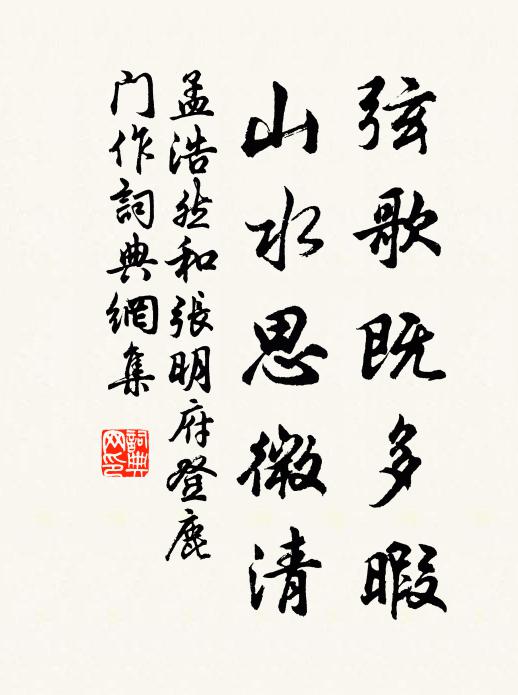 弦歌既多暇
山水思微清
孟浩然和張明府登鹿
门作詞典網集
詞典网印